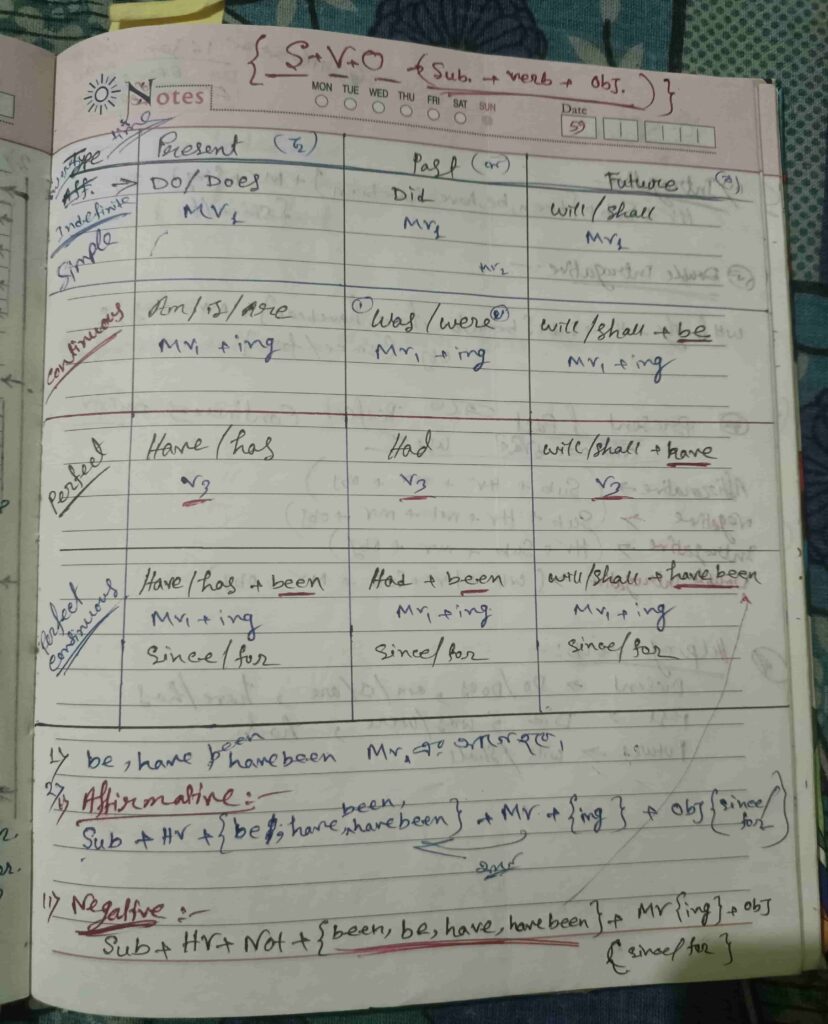 { S + V + O → (Sub. + verb + obj. ) }
Notes
MON TUE WED THU FRI SAT SUN
Date
59
Type Present Past Future
Aff. → Do/Does Did will/shall
Indefinite MV1 MV1 MV1
Simple MV2
Continuous Am/is/Are Was/were will/shall + be
MV1 + ing MV1 + ing MV1 + ing
Perfect Have/has Had will/shall + have
V3 V3 V3
Perfect Continuous Have/has + been Had + been will/shall + have been
MV1 + ing MV1 + ing MV1 + ing
Since/for Since/for Since/for
1) be, have been, have been MV1 এর আগে হবে।
2)
i) Affirmative :-
Sub + HV + {be, have, been, have been} + MV + {ing} + Obj {since/for}
ii) Negative :-
Sub + HV + Not + {been, be, have, have been} + MV {ing} + obj
{since/for}